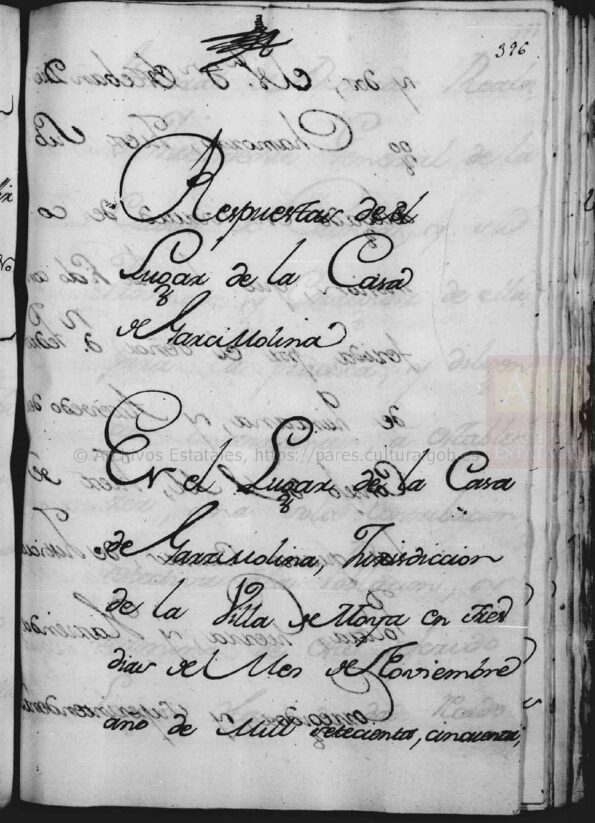 396
Respuestas de el
Lugar de la Casa
de Garcimolina
En el Lugar de la Casa
de Garzimolina, Jurisdiccion
de la Villa de Moya en tres
dias de el Mes de Noviembre
año de Mill setecientos, cinquenta,
© Archivos Estatales, https://pares.cultura.gob.es